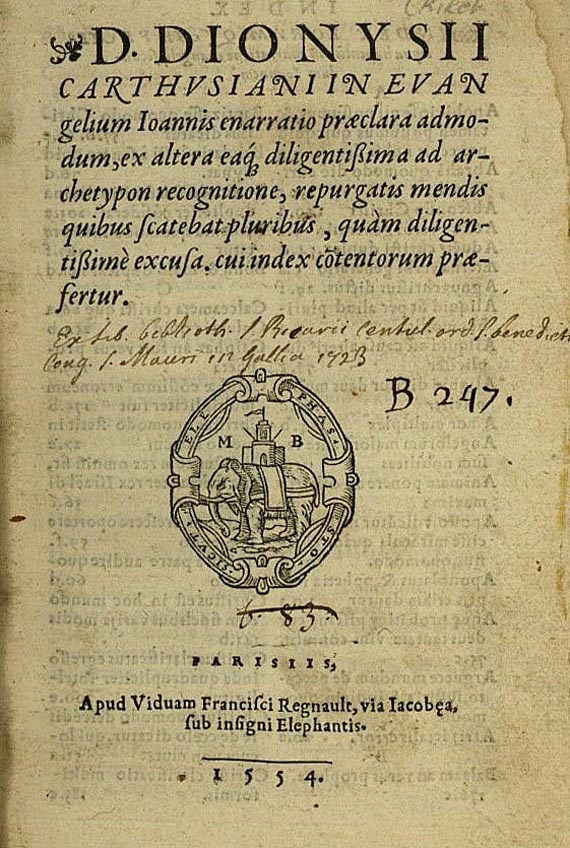 (Rikov
D. DIONYSII
CARTHVSIANI IN EVAN
gelium Ioannis enarratio præclara admo-
dum, ex altera eaq́; diligentißima ad ar-
chetypon recognitione, repurgatis mendis
quibus ſcatebat pluribus, quàm diligen-
tißimè excuſa. cui index cōtentorum præ-
fertur.
Ex lib. biblioth. S Ricarii Centul. ord. S. benedicti
Cong. S. Mauri in Gallia 1723
B 247.
ELE PHAS.
M B
SICVTI STO
6. 83.
PARISIIS,
Apud Viduam Franciſci Regnault, via Iacobęa,
ſub inſigni Elephantis.
1554.